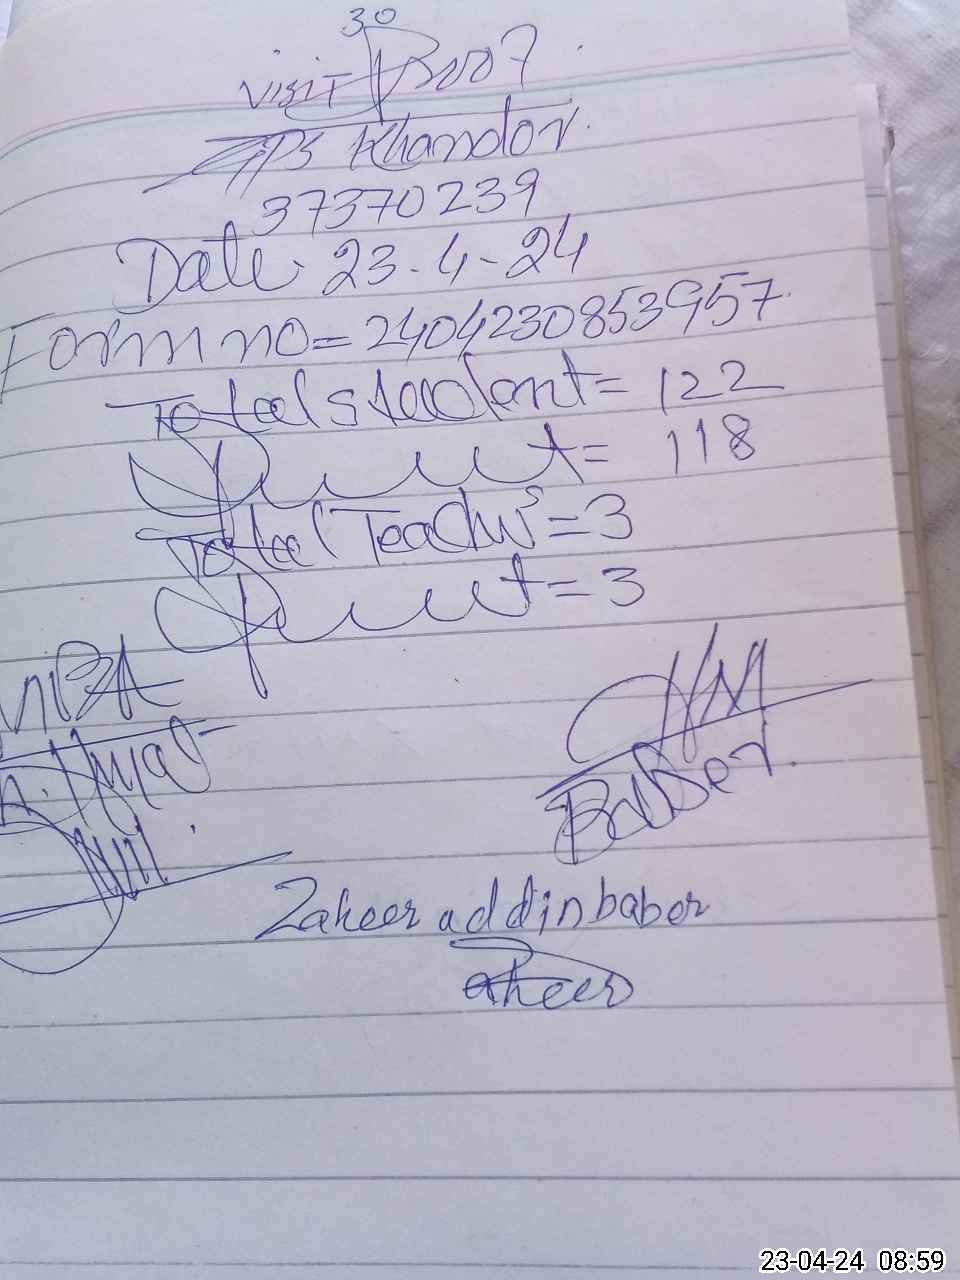 30
Visit Book
GPS Khandor.
37370239
Date. 23-4-24
Form no = 2404230853957.
Total student = 122
Present = 118
Total Teachers = 3
Present = 3
HM
Babber.
Zaheer addin baber
Zaheer
23-04-24 08:59